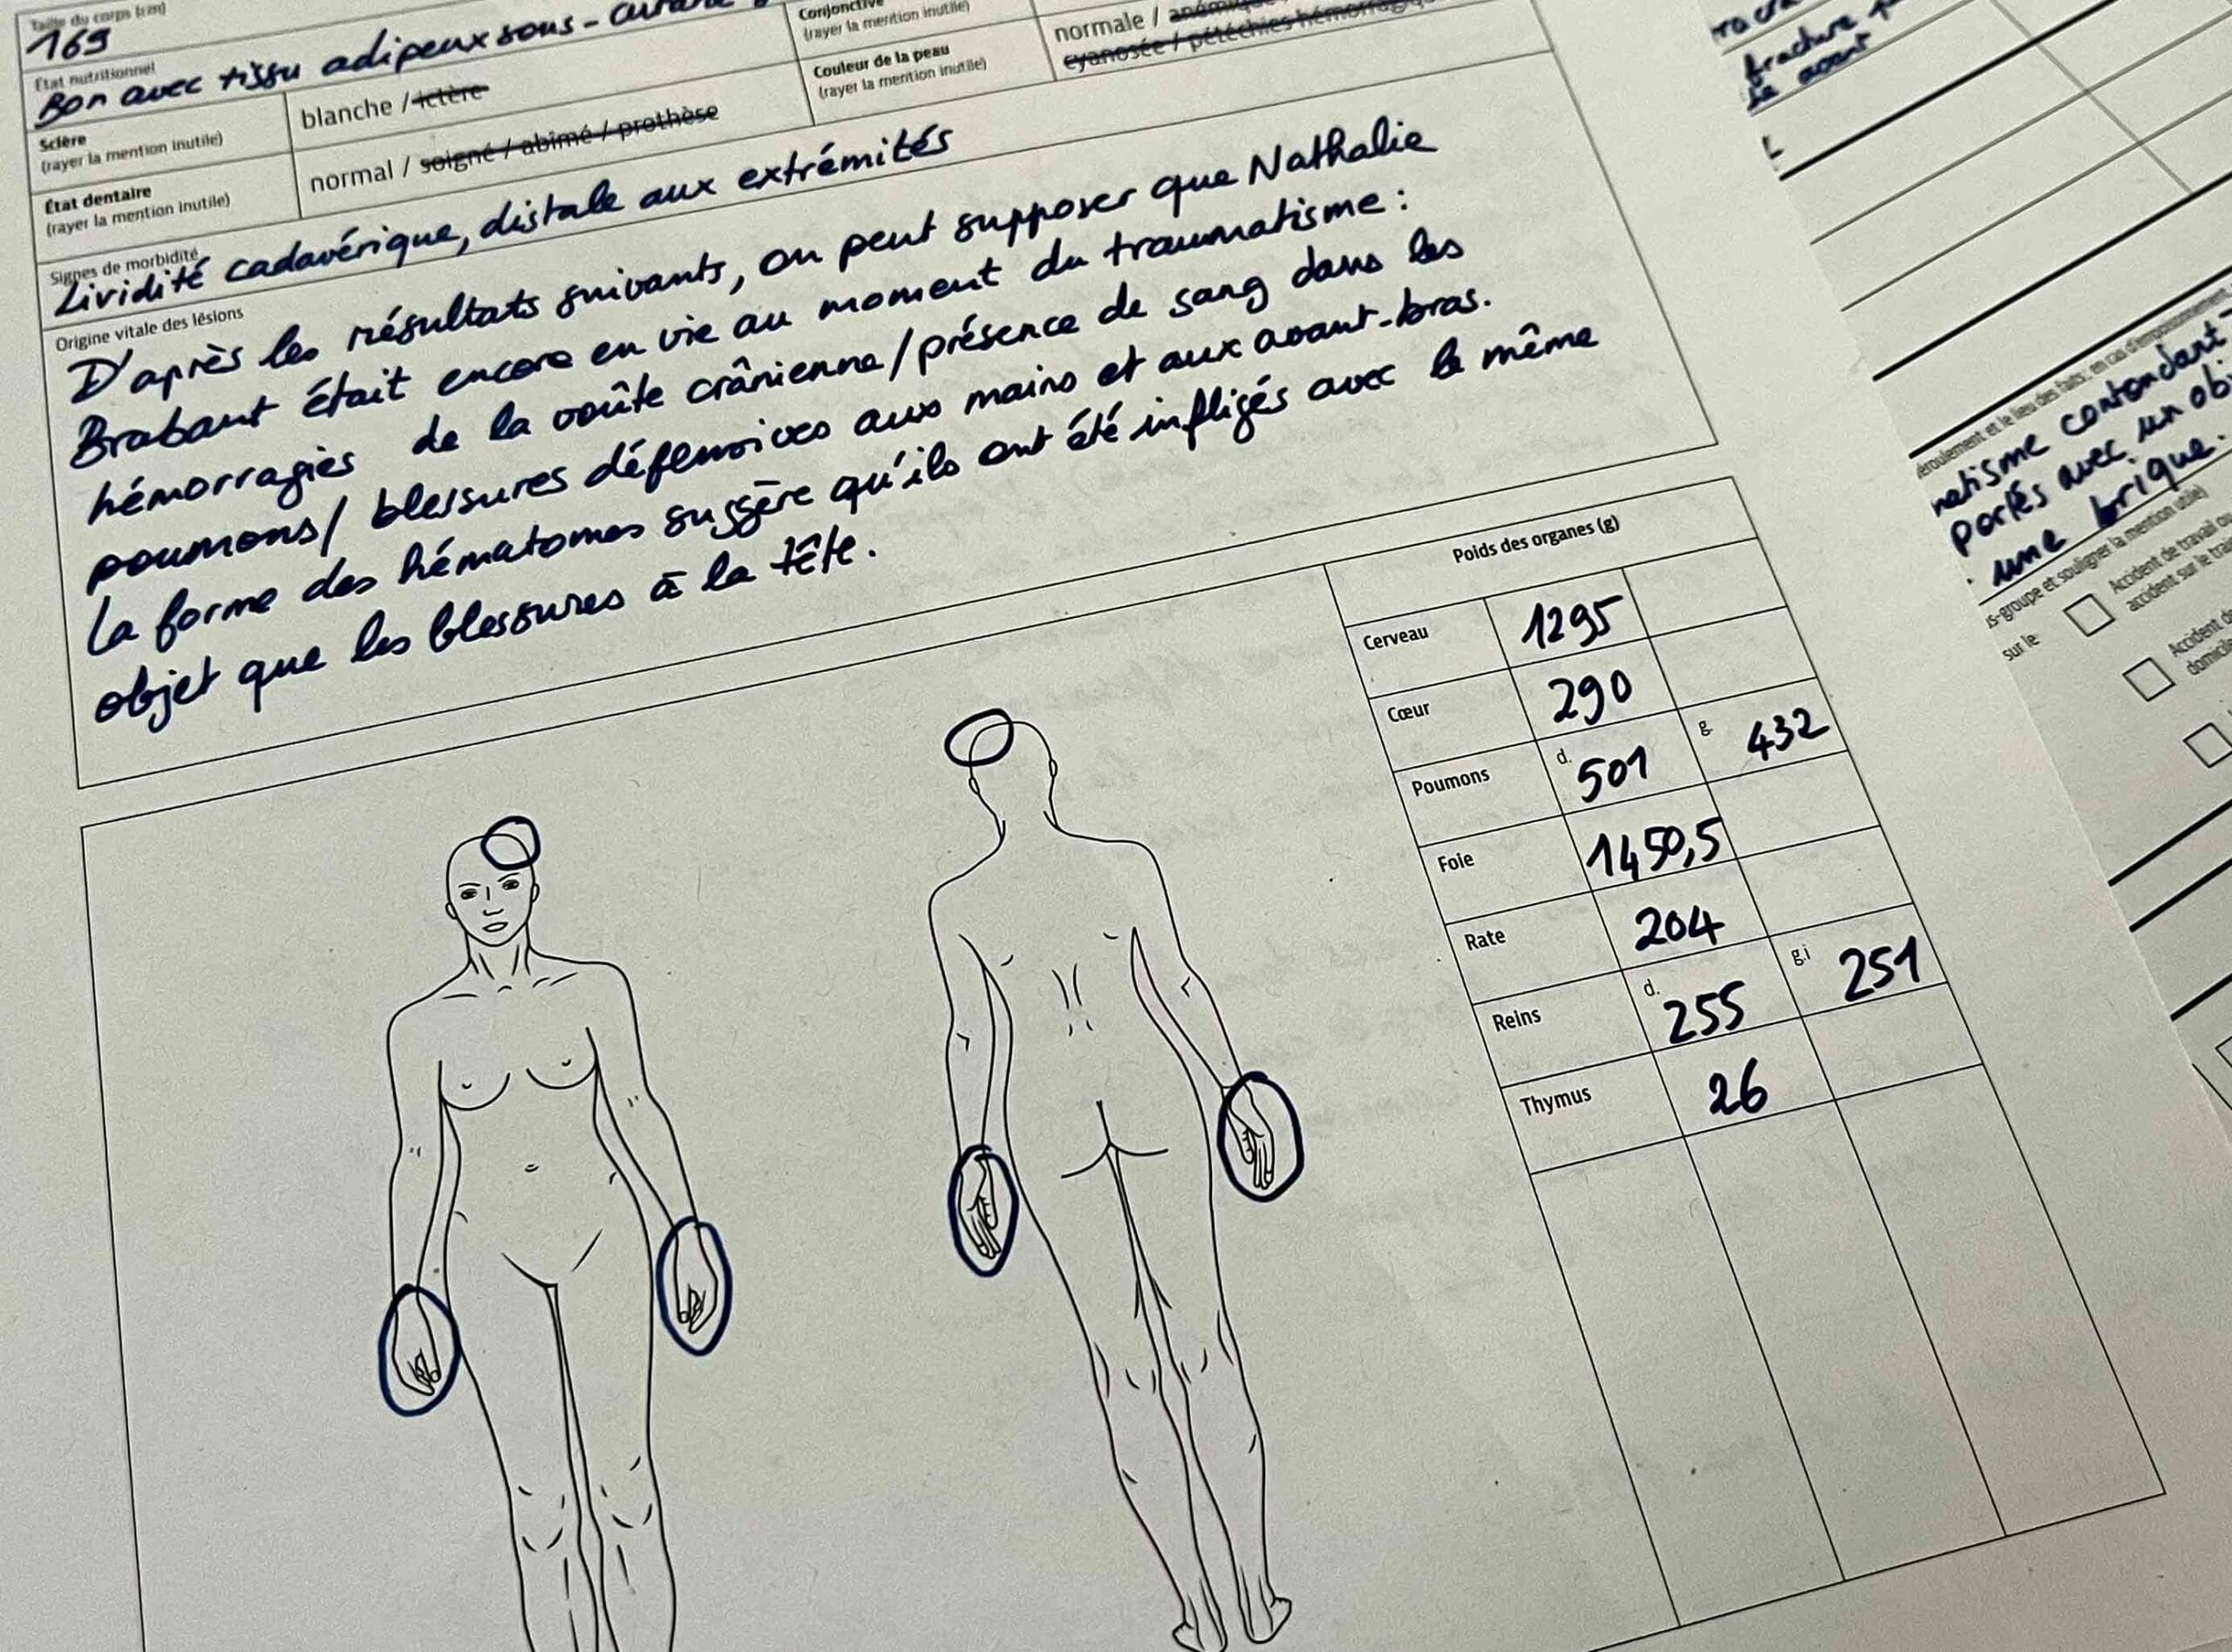 Taille du corps (cm)
169
État nutritionnel
Bon avec tissu adipeux sous-
Sclère
(rayer la mention inutile)
blanche / ictère
Conjonctive
(rayer la mention inutile)
normale /
État dentaire
(rayer la mention inutile)
normal / soigné / abîmé / prothèse
Couleur de la peau
(rayer la mention inutile)
cyanosée / pétéchies
Signes de morbidité
Lividité cadavérique, distale aux extrémités
Origine vitale des lésions
D'après les résultats suivants, on peut supposer que Nathalie
Brabant était encore en vie au moment du traumatisme :
hémorragies de la voûte crânienne/présence de sang dans les
poumons/ blessures défensives aux mains et aux avant-bras.
La forme des hématomes suggère qu'ils ont été infligés avec le même
objet que les blessures à la tête.
Poids des organes (g)
Cerveau 1295
Cœur 290
Poumons d. 501 g. 432
Foie 1450,5
Rate 204
Reins d. 255 g.i 251
Thymus 26
fracture
avant
contondant
portés avec un
une brique.
souligner la mention utile)
sur le
Accident de travail ou
accident sur le
Accident